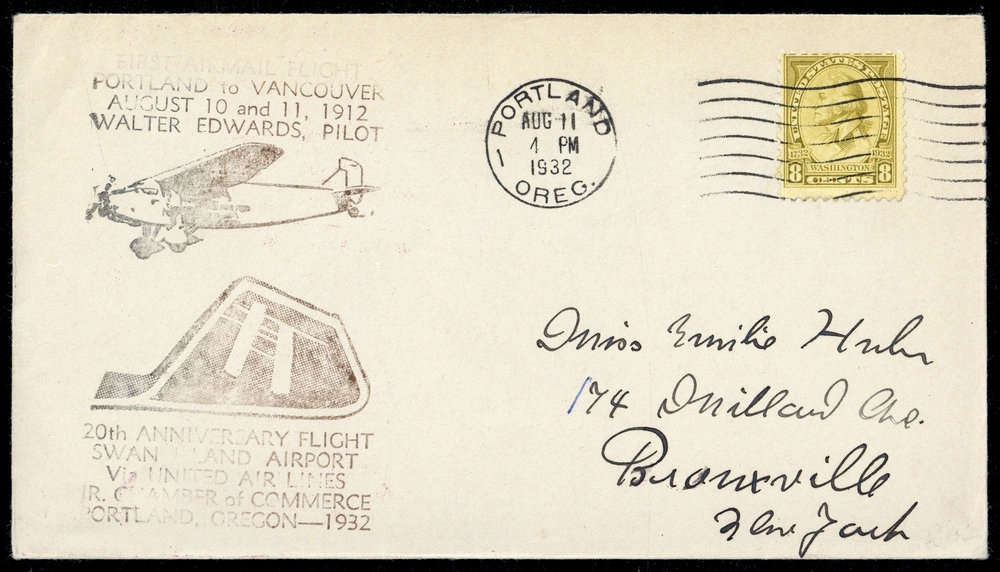 FIRST AIRMAIL FLIGHT
PORTLAND to VANCOUVER
AUGUST 10 and 11, 1912
WALTER EDWARDS, PILOT
PORTLAND
1
AUG 11
4 PM
1932
OREG.
1732 1932
WASHINGTON
8 CENTS 8
Miss Emilie Huber
174 Millard Ave.
Bronxville
New York
20th ANNIVERSARY FLIGHT
SWAN ISLAND AIRPORT
Via UNITED AIR LINES
JR. CHAMBER of COMMERCE
PORTLAND, OREGON—1932